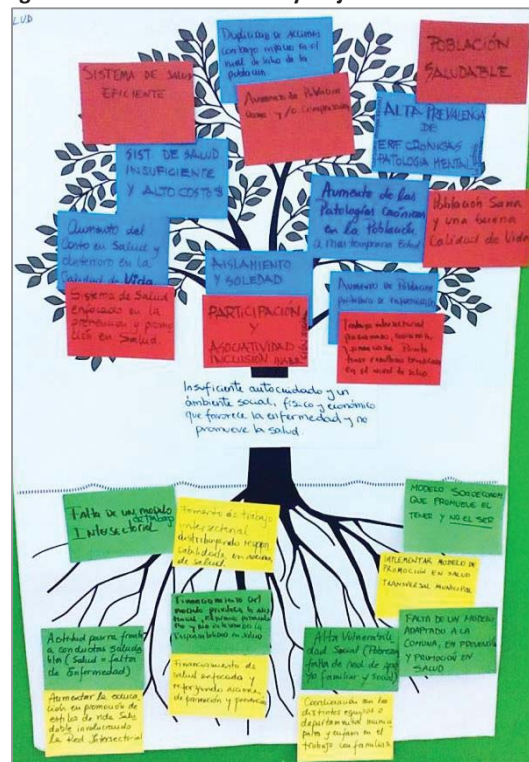 LUD
Duplicidad de acciones
con bajo impacto en el
nivel de salud de la
población
POBLACIÓN
SALUDABLE
SISTEMA DE SALUD
EFICIENTE
Aumento de Población
Sana y/o Compensada
ALTA PREVALENCIA
DE
ENF CRÓNICAS
PATOLOGIA MENTAL
SIST. DE SALUD
INSUFICIENTE
Y ALTO COSTO
Aumento de las
Patologías Crónicas
en la Población
a mas temprana Edad
Población Sana
y una buena
Calidad de Vida
Aumento del
Costo en Salud y
deterioro en la
Calidad de Vida
AISLAMIENTO
Y SOLEDAD
Aumento de Población
Sistema de Salud
enfocado en la
prevención y
en Salud
PARTICIPACIÓN
Y
ASOCIATIVIDAD
INCLUSIÓN
Trabajo intersectorial
en el nivel de salud
Insuficiente autocuidado y un
ámbiente social, físico y económico
que favorece la enfermedad y no
promueve la salud.
Falta de un modulo
de trabajo
Intersectorial
Fomento de trabajo
intersectorial
distribuyendo respon
sabilidades en
de salud.
MODELO SOCIOECONOM
QUE PROMUEVE EL
TENER Y NO EL SER
IMPLEMENTAR MODELO DE
PROMOCION EN SALUD
TRANSVERSAL MUNICIPAL
Financiamiento del
modelo
en salud
Actitud pasiva frente
a conductas saluda
bles (Salud = falta
de Enfermedad)
Alta Vulnerabili
dad Social (Pobreza
falta de red de apo
yo familiar y social)
FALTA DE UN MODELO
ADAPTADO A LA
COMUNA, EN PREVENCIÓN
Y PROMOCIÓN EN
SALUD
Financiamiento de
salud enfocado y
reforzando acciones
de promoción y prevención
Aumentar la educa
ción en promoción de
estilos de vida Salu
dable involucrando
la Red Intersectorial
Coordinación con los
distintos equipos o
departamentos munici
pales y enfasis en el
trabajo con familias.